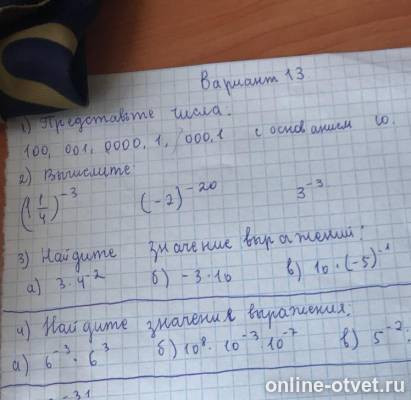 Вариант 13
1) Представьте числа.
100, 001, 0000, 1, /000,1 с основанием 10.
2) Вычислите
(1 1/4)⁻³ (-2)⁻²⁰ 3⁻³
3) Найдите значение выражений:
а) 3·4⁻² б) -3·10 в) 10·(-5)⁻¹
4) Найдите значения выражения:
а) 6⁻³·6³ б) 10⁸·10⁻³ 10⁻⁷ в) 5⁻²:
online-otvet.ru